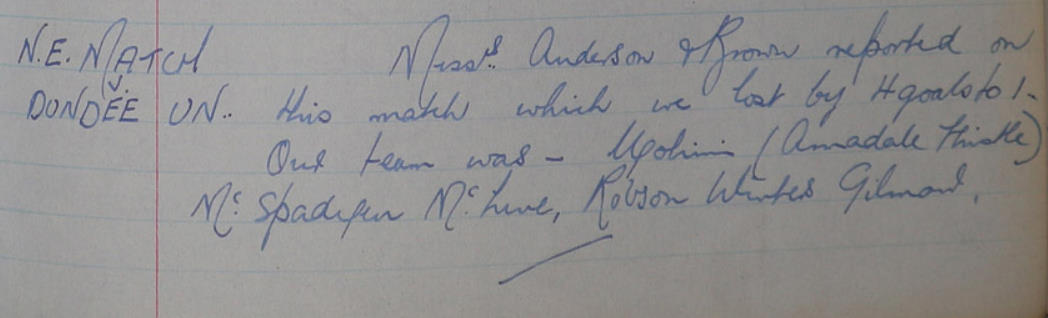 N.E. MATCH Messrs Anderson & Brown reported on
V.
DUNDEE UN.. this match which we lost by 4 goals to 1.
Our team was - (Armadale Thistle)
Mc Spadyen Robson Winters Gilmour,